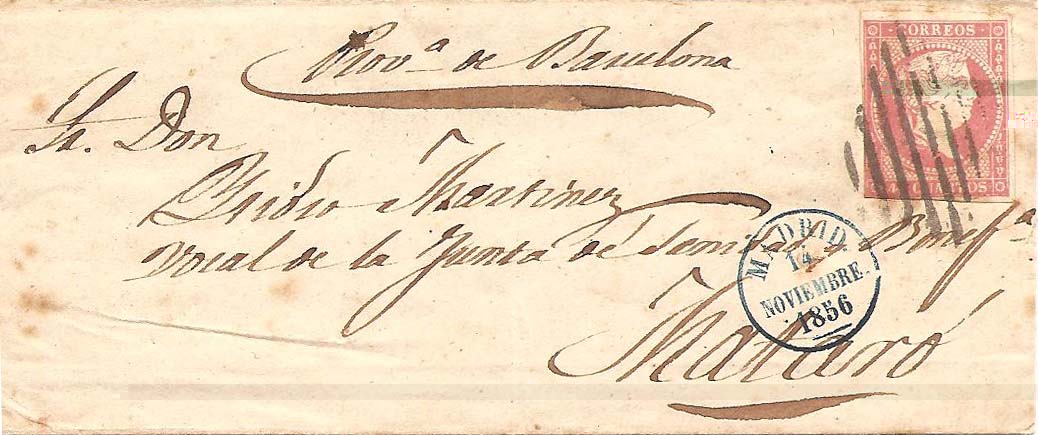 Provª de Barcelona
CORREOS
Sr. Don
Ysidro Martinez
4 CUARTOS
Vocal de la Junta de Benefª
MADRID
14
NOVIEMBRE
1856
Mataró